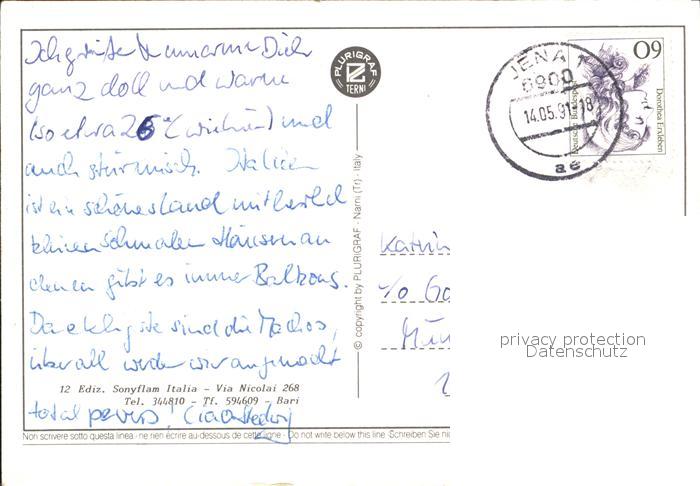 Ich grüße & umarme Dich
ganz doll und warm
(so etwa 26°C wirken) und
auch stürmisch. Italien
ist ein schönes Land mit
kleinen schmalen Häusern an
denen gibt es immer Balkons.
Das sind die Machos,
überall werden wir angemacht
total pervers! Ciao
12 Ediz. Sonyflam Italia - Via Nicolai 268
Tel. 344810 - Tf. 594609 - Bari
Non scrivere sotto questa linea - ne rien écrire au-dessous de cette ligne - Do not write below this line - Schreiben Sie nic
PLURIGRAF
TERNI
© copyright by PLURIGRAF - Narni (Tr) - Italy
JENA 1
6900
14.05.91-18
ae
60
Deutsche Bundespost
Dorothea Erxleben
Katrin
c/o Go
Mün
privacy protection
Datenschutz